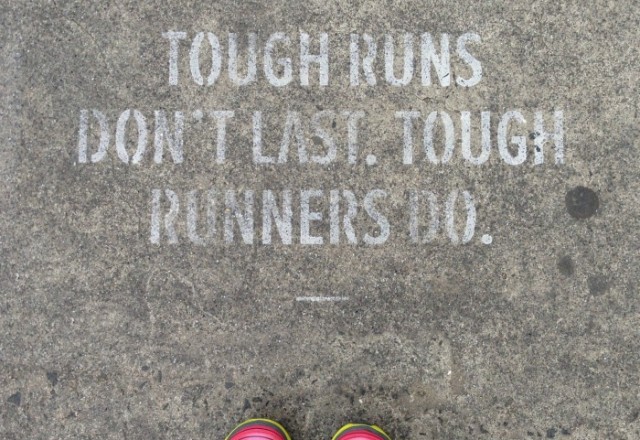 TOUGH RUNS
DON'T LAST. TOUGH
RUNNERS DO.